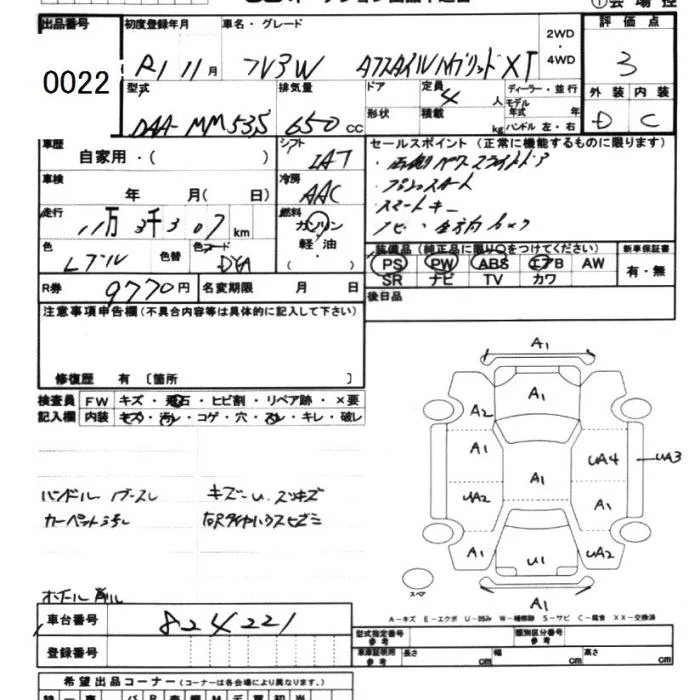 出品番号 初度登録年月 車名・グレード 2WD 4WD 評価点
0022 R1 11月 フレアW XT 3
型式 排気量 ドア 定員 ディーラー・並行 外装 内装
DAA-MM53S 650cc 形状 積載 4人 kg モデル年式 年 ハンドル 左・右 D C
車歴 自家用・( ) シフト IAT セールスポイント(正常に機能するものに限ります)
・両側パワースライドドア
車検 年 月( 日) 冷房 AAC ・プッシュスタート
・スマートキー
走行 11万3千307km 燃料 ガソリン 軽油 ( ) ・ナビ・全方向カメラ
色 Lブル 色替 色コード 装備品(純正品に限り○をつけてください) 新車保証書
PS PW ABS エアB AW 有・無
SR ナビ TV カワ
R券 9770円 名変期限 月 日 後日品
注意事項申告欄(不具合内容等は具体的に記入して下さい)
修復歴 有 〔箇所 〕
検査員 FW キズ・飛石・ヒビ割・リペア跡・×要
記入欄 内装 キズ・汚レ・コゲ・穴・スレ・キレ・破レ
ハンドル キズ・U、スリキズ
カーペット汚レ
A1
A1
A2
A1 UA4 UA3
A1
UA2 A1
A1 U1 UA2
A1
スペア
A-キズ E-エクボ U-凹み W-補修跡 S-サビ C-腐食 XX-交換済
車台番号 824221
型式指定番号 参考 類別区分番号 参考
登録番号 車庫証明用 参考 長さ cm 幅 cm 高さ cm
希望出品コーナー(コーナーは各会場により異なります。)